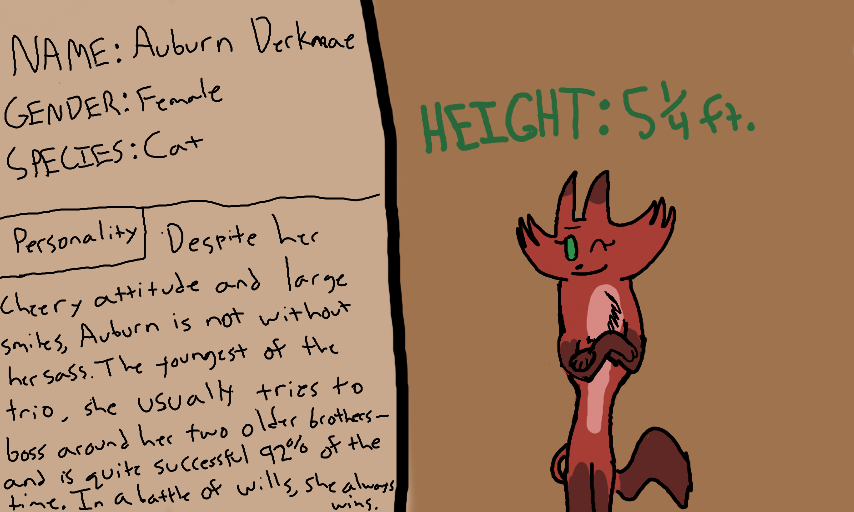 NAME: Auburn Derkmae
GENDER: Female
SPECIES: Cat
Personality Despite her
cheery attitude and large
smiles, Auburn is not without
her sass. The youngest of the
trio, she usually tries to
boss around her two older brothers—
and is quite successful 92% of the
time. In a battle of wills, she always
wins.
HEIGHT: 5 1/4 ft.